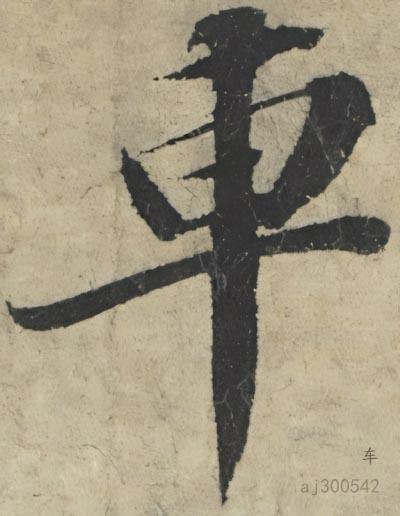 車
车
aj300542